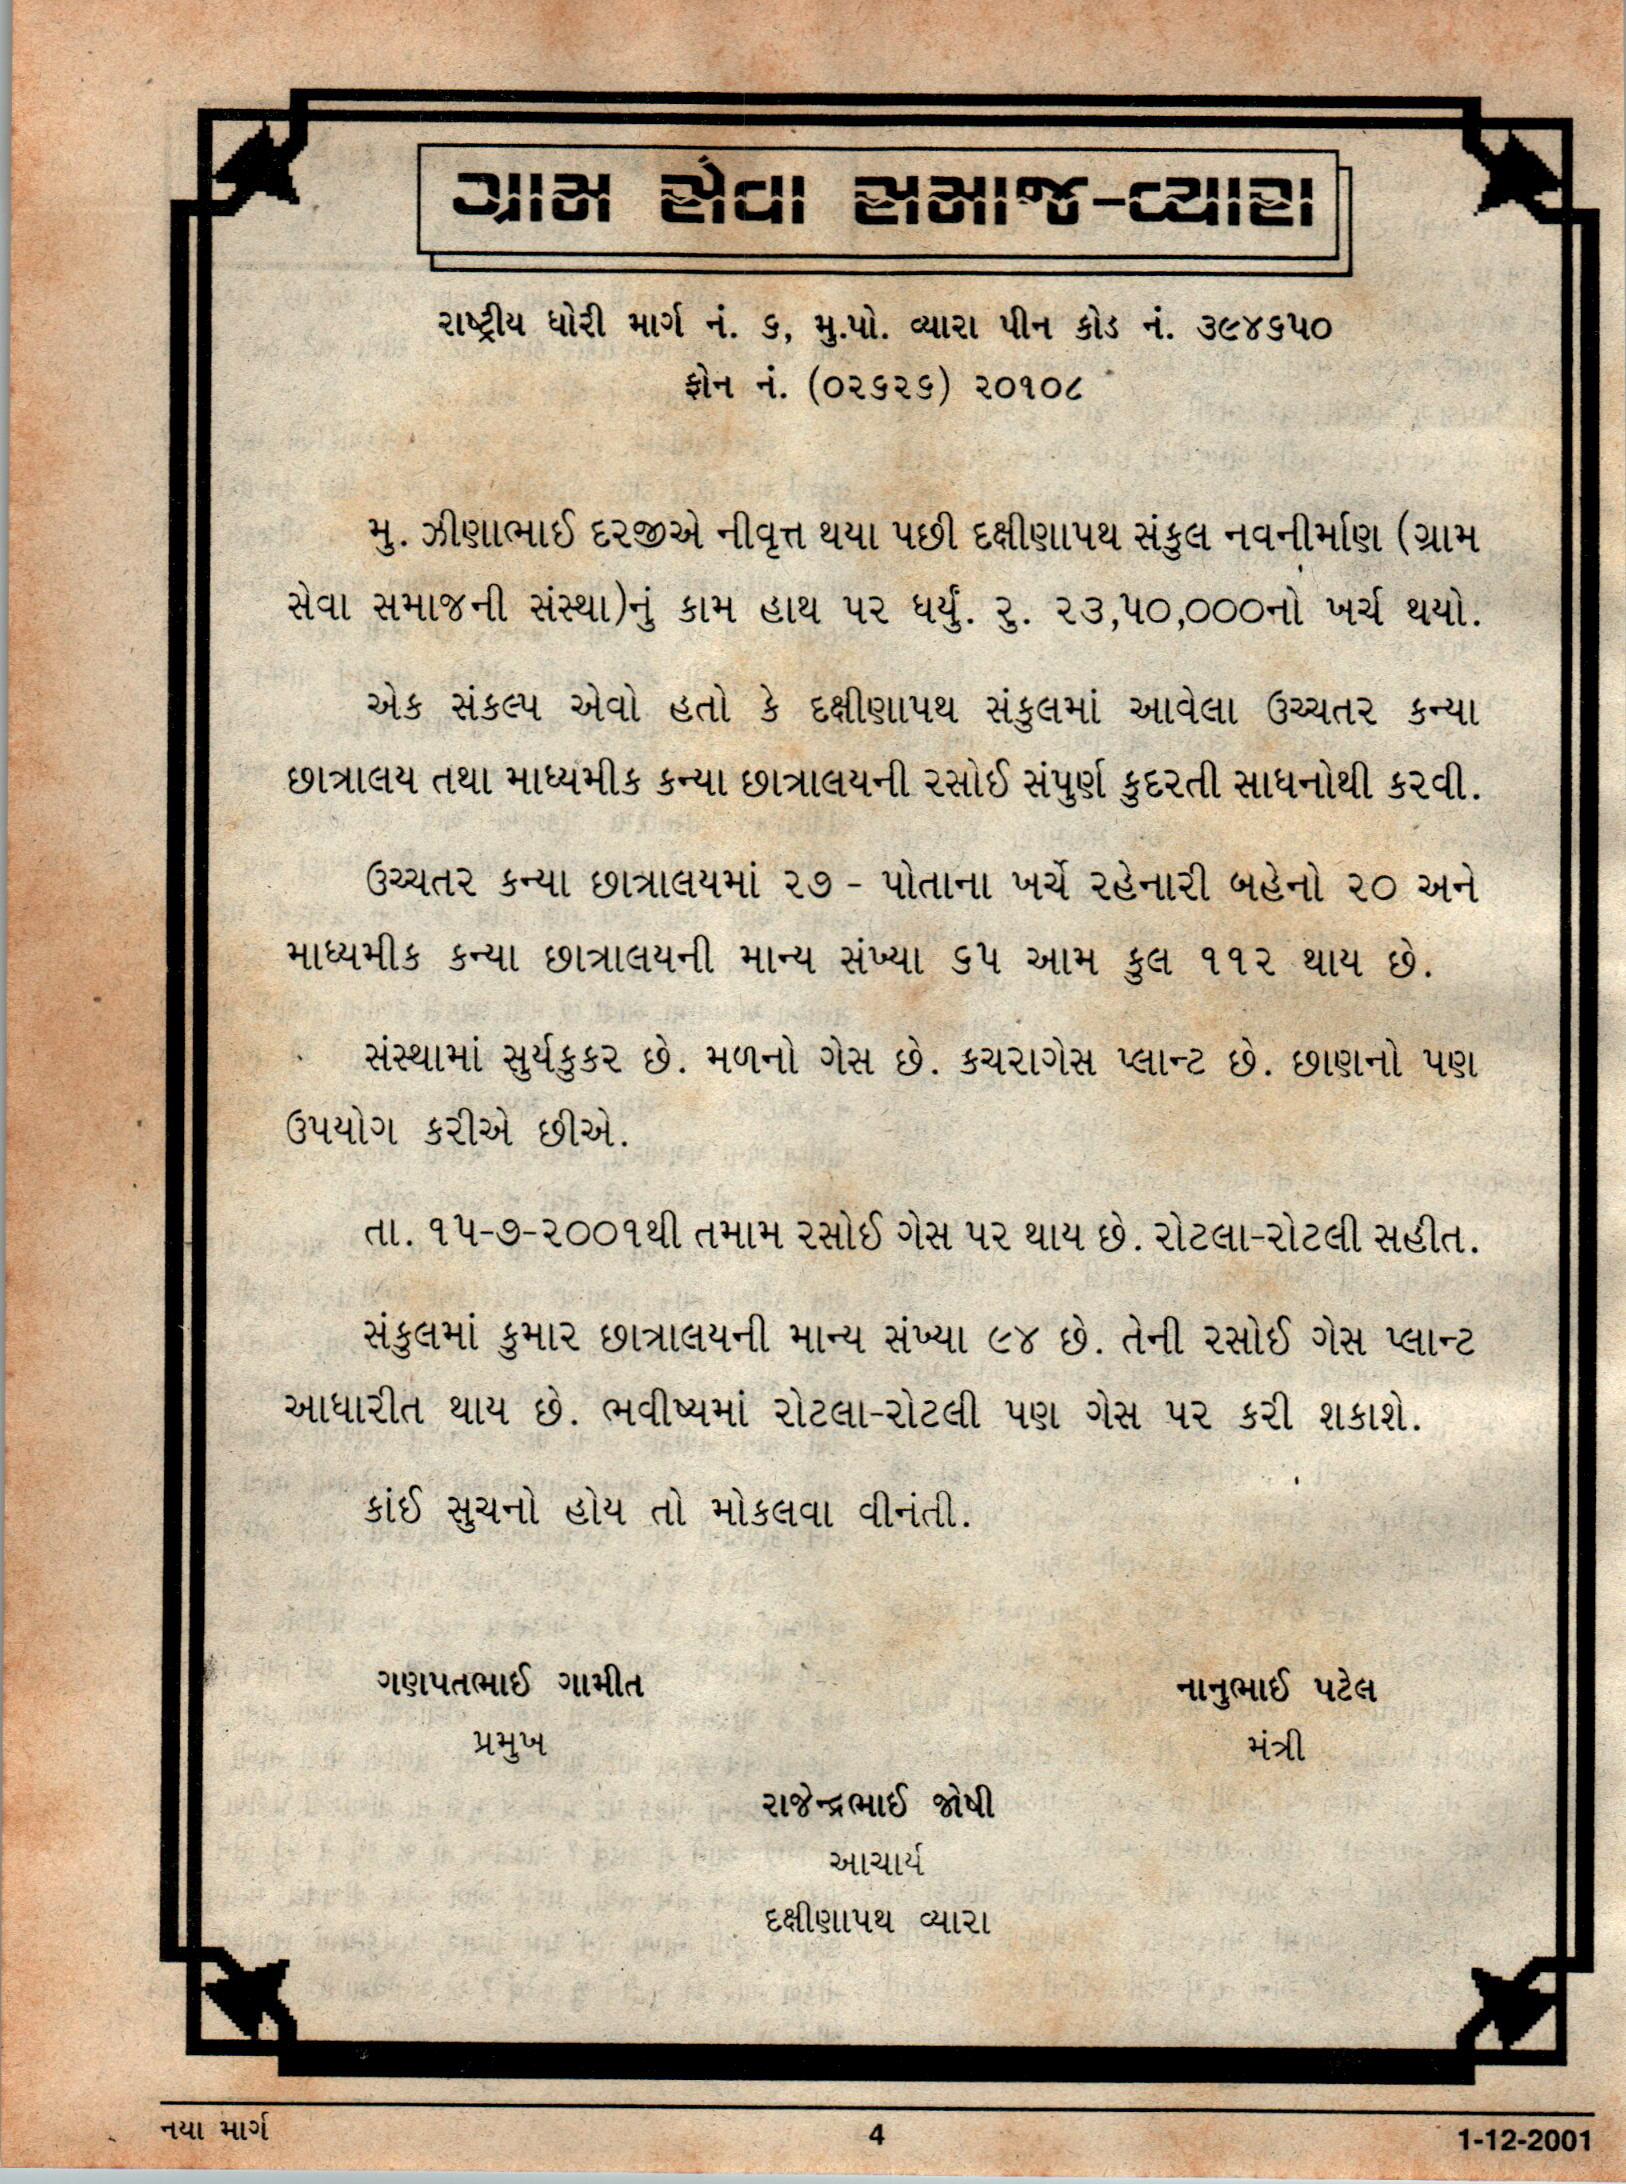 ગ્રામ સેવા સમાજ-વ્યારા
રાષ્ટ્રીય ધોરી માર્ગ નં. ૬, મુ.પો. વ્યારા પીન કોડ નં. ૩૯૪૬૫૦
ફોન નં. (૦૨૬૨૬) ૨૦૧૦૮
મુ. ઝીણાભાઈ દરજીએ નીવૃત્ત થયા પછી દક્ષીણાપથ સંકુલ નવનીર્માણ (ગ્રામ
સેવા સમાજની સંસ્થા)નું કામ હાથ પર ધર્યું. રુ. ૨૩,૫૦,૦૦૦નો ખર્ચ થયો.
એક સંકલ્પ એવો હતો કે દક્ષીણાપથ સંકુલમાં આવેલા ઉચ્ચતર કન્યા
છાત્રાલય તથા માધ્યમીક કન્યા છાત્રાલયની રસોઈ સંપુર્ણ કુદરતી સાધનોથી કરવી.
ઉચ્ચતર કન્યા છાત્રાલયમાં ૨૭ - પોતાના ખર્ચે રહેનારી બહેનો ૨૦ અને
માધ્યમીક કન્યા છાત્રાલયની માન્ય સંખ્યા ૬૫ આમ કુલ ૧૧૨ થાય છે.
સંસ્થામાં સુર્યકુકર છે. મળનો ગેસ છે. કચરાગેસ પ્લાન્ટ છે. છાણનો પણ
ઉપયોગ કરીએ છીએ.
તા. ૧૫-૭-૨૦૦૧થી તમામ રસોઈ ગેસ પર થાય છે. રોટલા-રોટલી સહીત.
સંકુલમાં કુમાર છાત્રાલયની માન્ય સંખ્યા ૯૪ છે. તેની રસોઈ ગેસ પ્લાન્ટ
આધારીત થાય છે. ભવીષ્યમાં રોટલા-રોટલી પણ ગેસ પર કરી શકાશે.
કાંઈ સુચનો હોય તો મોકલવા વીનંતી.
ગણપતભાઈ ગામીત
પ્રમુખ
નાનુભાઈ પટેલ
મંત્રી
રાજેન્દ્રભાઈ જોષી
આચાર્ય
દક્ષીણાપથ વ્યારા
નયા માર્ગ
4
1-12-2001